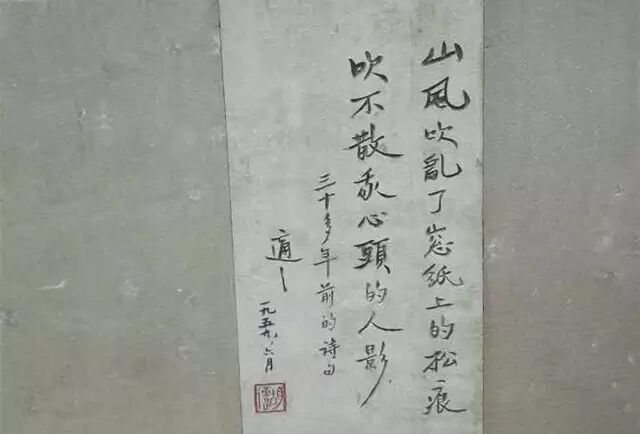 山風吹亂了窓紙上的松痕
吹不散我心頭的人影
三十多年前的詩句
適之
一九五九,六月